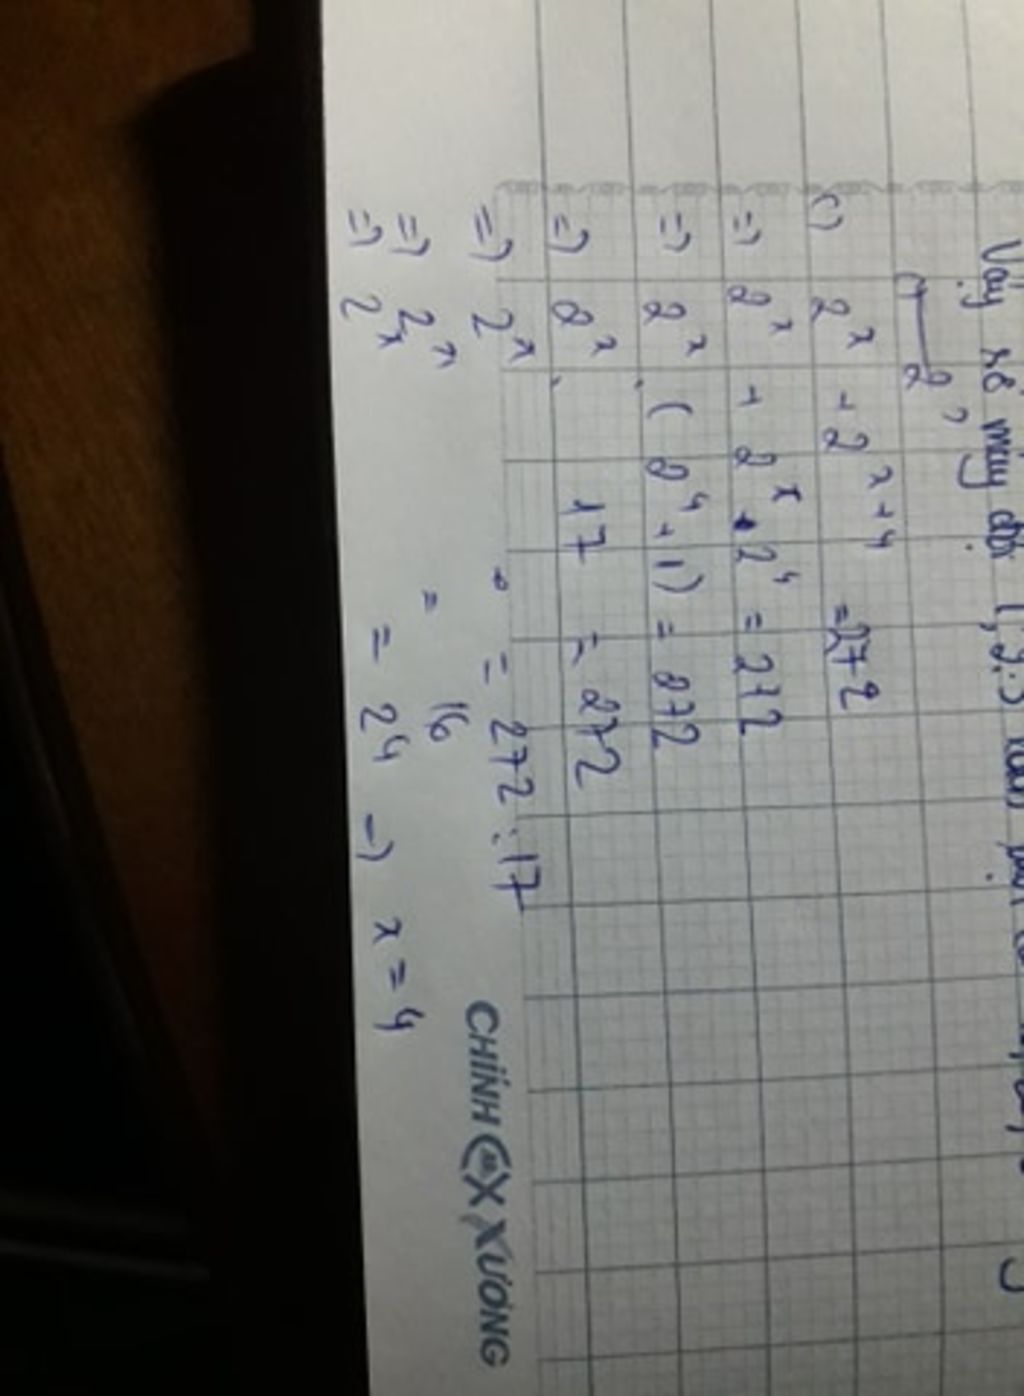 Vậy số máy đội 1, 2, 3 lần
c) 2^x + 2^x+4 = 272
=> 2^x + 2^x . 2^4 = 272
=> 2^x . (2^4 + 1) = 272
=> 2^x . 17 = 272
=> 2^x = 272 : 17
=> 2^x = 16
=> 2^x = 2^4 -> x = 4
CHÍNH XƯƠNG